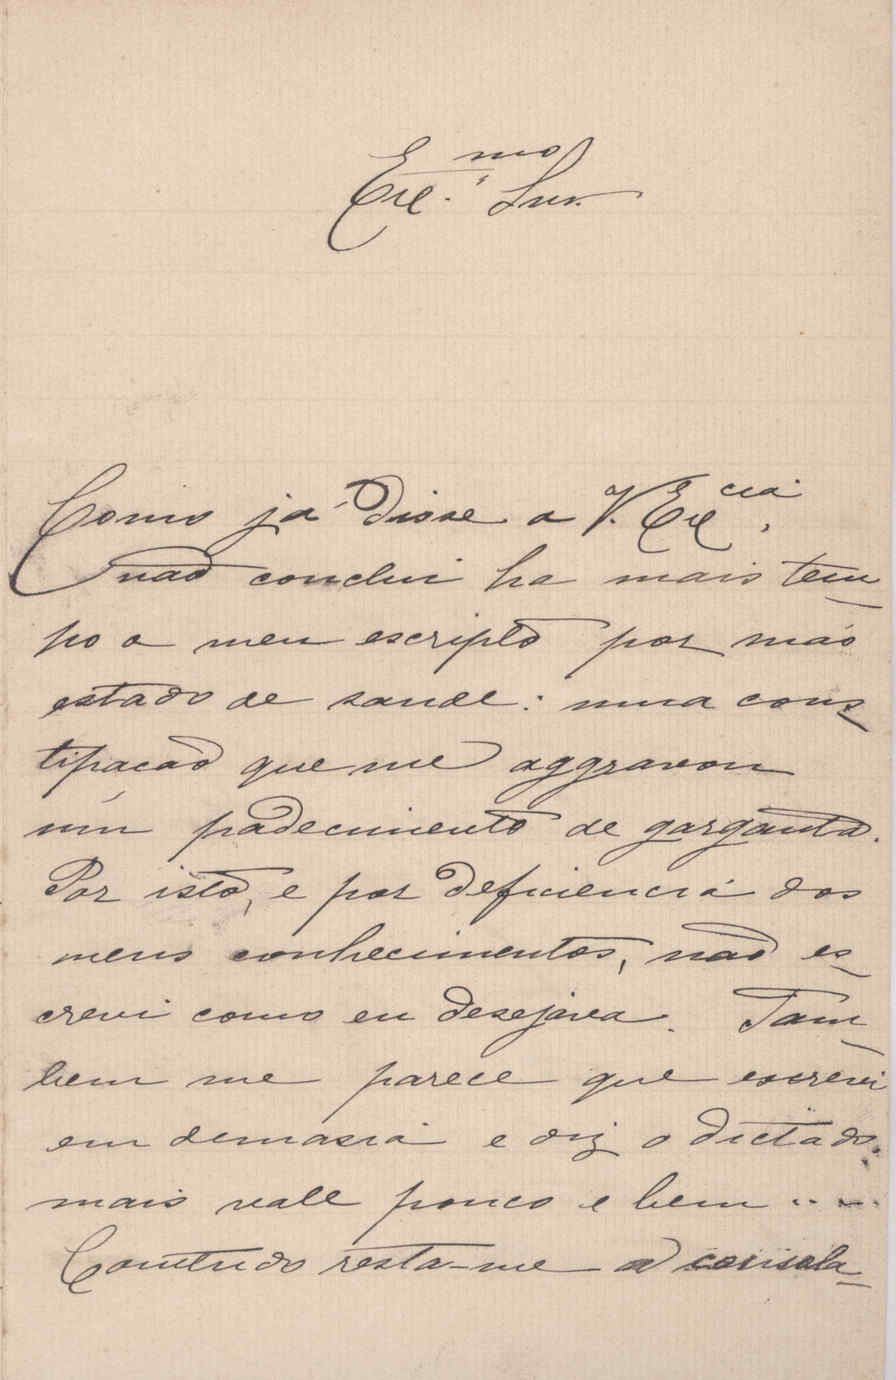 Ex.mo Snr.
Como já disse a V. Excia,
não conclui ha mais tem-
po o meu escripto por máo
estado de saude: uma cons-
tipacão que me aggravou
um padecimento de garganta.
Por isto, e por deficiencia dos
meus conhecimentos, não es-
crevi como eu desejava. Tam-
bem me parece que escrevi
em demasia e diz o dictado:
mais vale pouco e bem .. ...
Comtudo resta-me a consola-